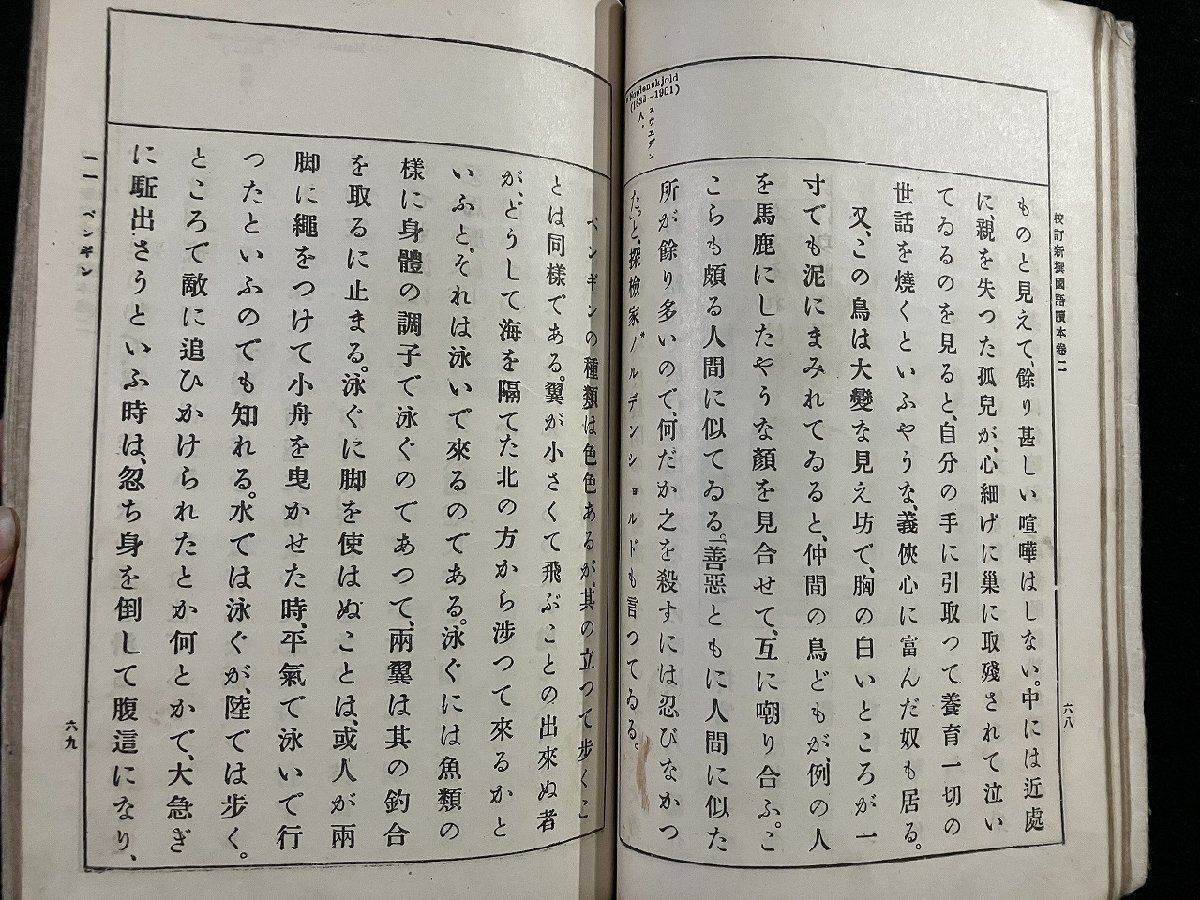 校訂新撰國語讀本卷二
六八
ものと見えて、餘り甚しい喧嘩はしない。中には近處
に、親を失つた孤兒が、心細げに巢に取殘されて泣い
てゐるのを見ると、自分の手に引取つて養育一切の
世話を燒くといふやうな、義俠心に富んだ奴も居る。
又、この鳥は大變な見え坊で、胸の白いところが一
寸でも泥にまみれてゐると、仲間の鳥どもが、例の人
を馬鹿にしたやうな顏を見合せて、互に嘲り合ふ。こ
こらも頗る人間に似てゐる。「善惡ともに人間に似た
所が餘り多いので、何だか之を殺すには忍びなかつ
た。」と、探檢家ノルデンショルドも言つてゐる。
(18 ~1901)
ペンギンの種類は色色あるが、其の立つて步くこ
とは同樣である。翼が小さくて飛ぶことの出來ぬ者
が、どうして海を隔てた北の方から涉つて來るかと
いふと、それは泳いで來るのである。泳ぐには魚類の
樣に身體の調子で泳ぐのであつて、兩翼は其の釣合
を取るに止まる。泳ぐに脚を使はぬことは、或人が兩
脚に繩をつけて小舟を曳かせた時、平氣で泳いで行
つたといふのでも知れる。水では泳ぐが、陸では步く。
ところで敵に追ひかけられたとか何とかで、大急ぎ
に駈出さうといふ時は、忽ち身を倒して腹這になり、
ペンギン
六九